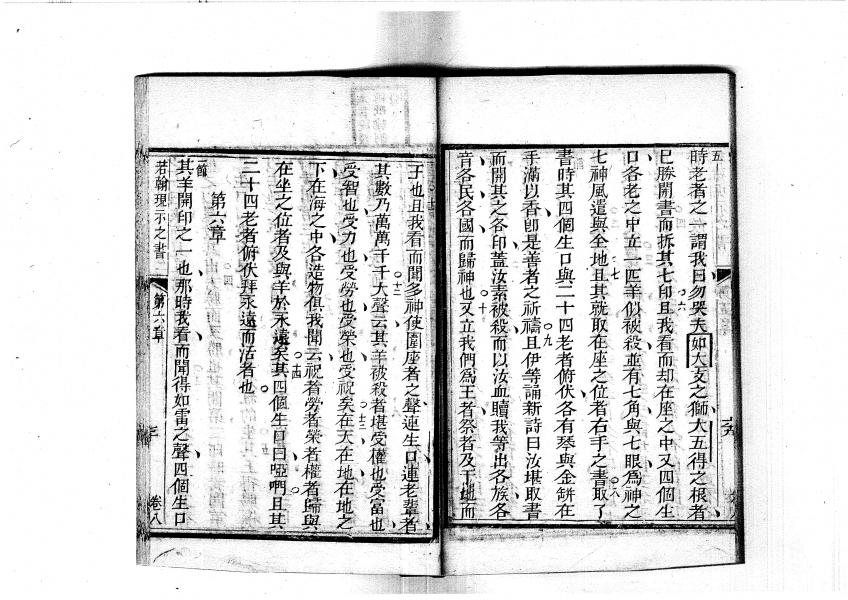 五
時老者之一謂我曰勿哭夫如大支之獅大五得之根者
已勝開書而拆其七印且我看而却在座之中又四個生
口各老之中立一匹羊似被殺並有七角與七眼為神之
七神風遣與全地且其就取在座之位者右手之書取了
書時其四個生口與二十四老者俯伏各有琴與金缾在
手滿以香卽是善者之祈禱且伊等誦新詩曰汝堪取書
而開其之各印蓋汝素被殺而以汝血贖我等出各族各
音各民各國而歸神也又立我們為王者祭者及于地而
于也且我看而聞多神使圍座者之聲連生口連老輩者
其數乃萬萬千千大聲云其羊被殺者堪受權也受富也
受智也受力也受勞也受榮也受祝矣在天在地在地之
下在海之中各造物俱我聞云祝者勞者榮者權者歸與
在坐之位者及與羊於永遠矣其四個生口曰啞𠵽且其
二十四老者俯伏拜永遠而活者也
第六章
一節
其羊開印之一也那時我看而聞得如雷之聲四個生口
若翰現示之書
第六章
三
卷八